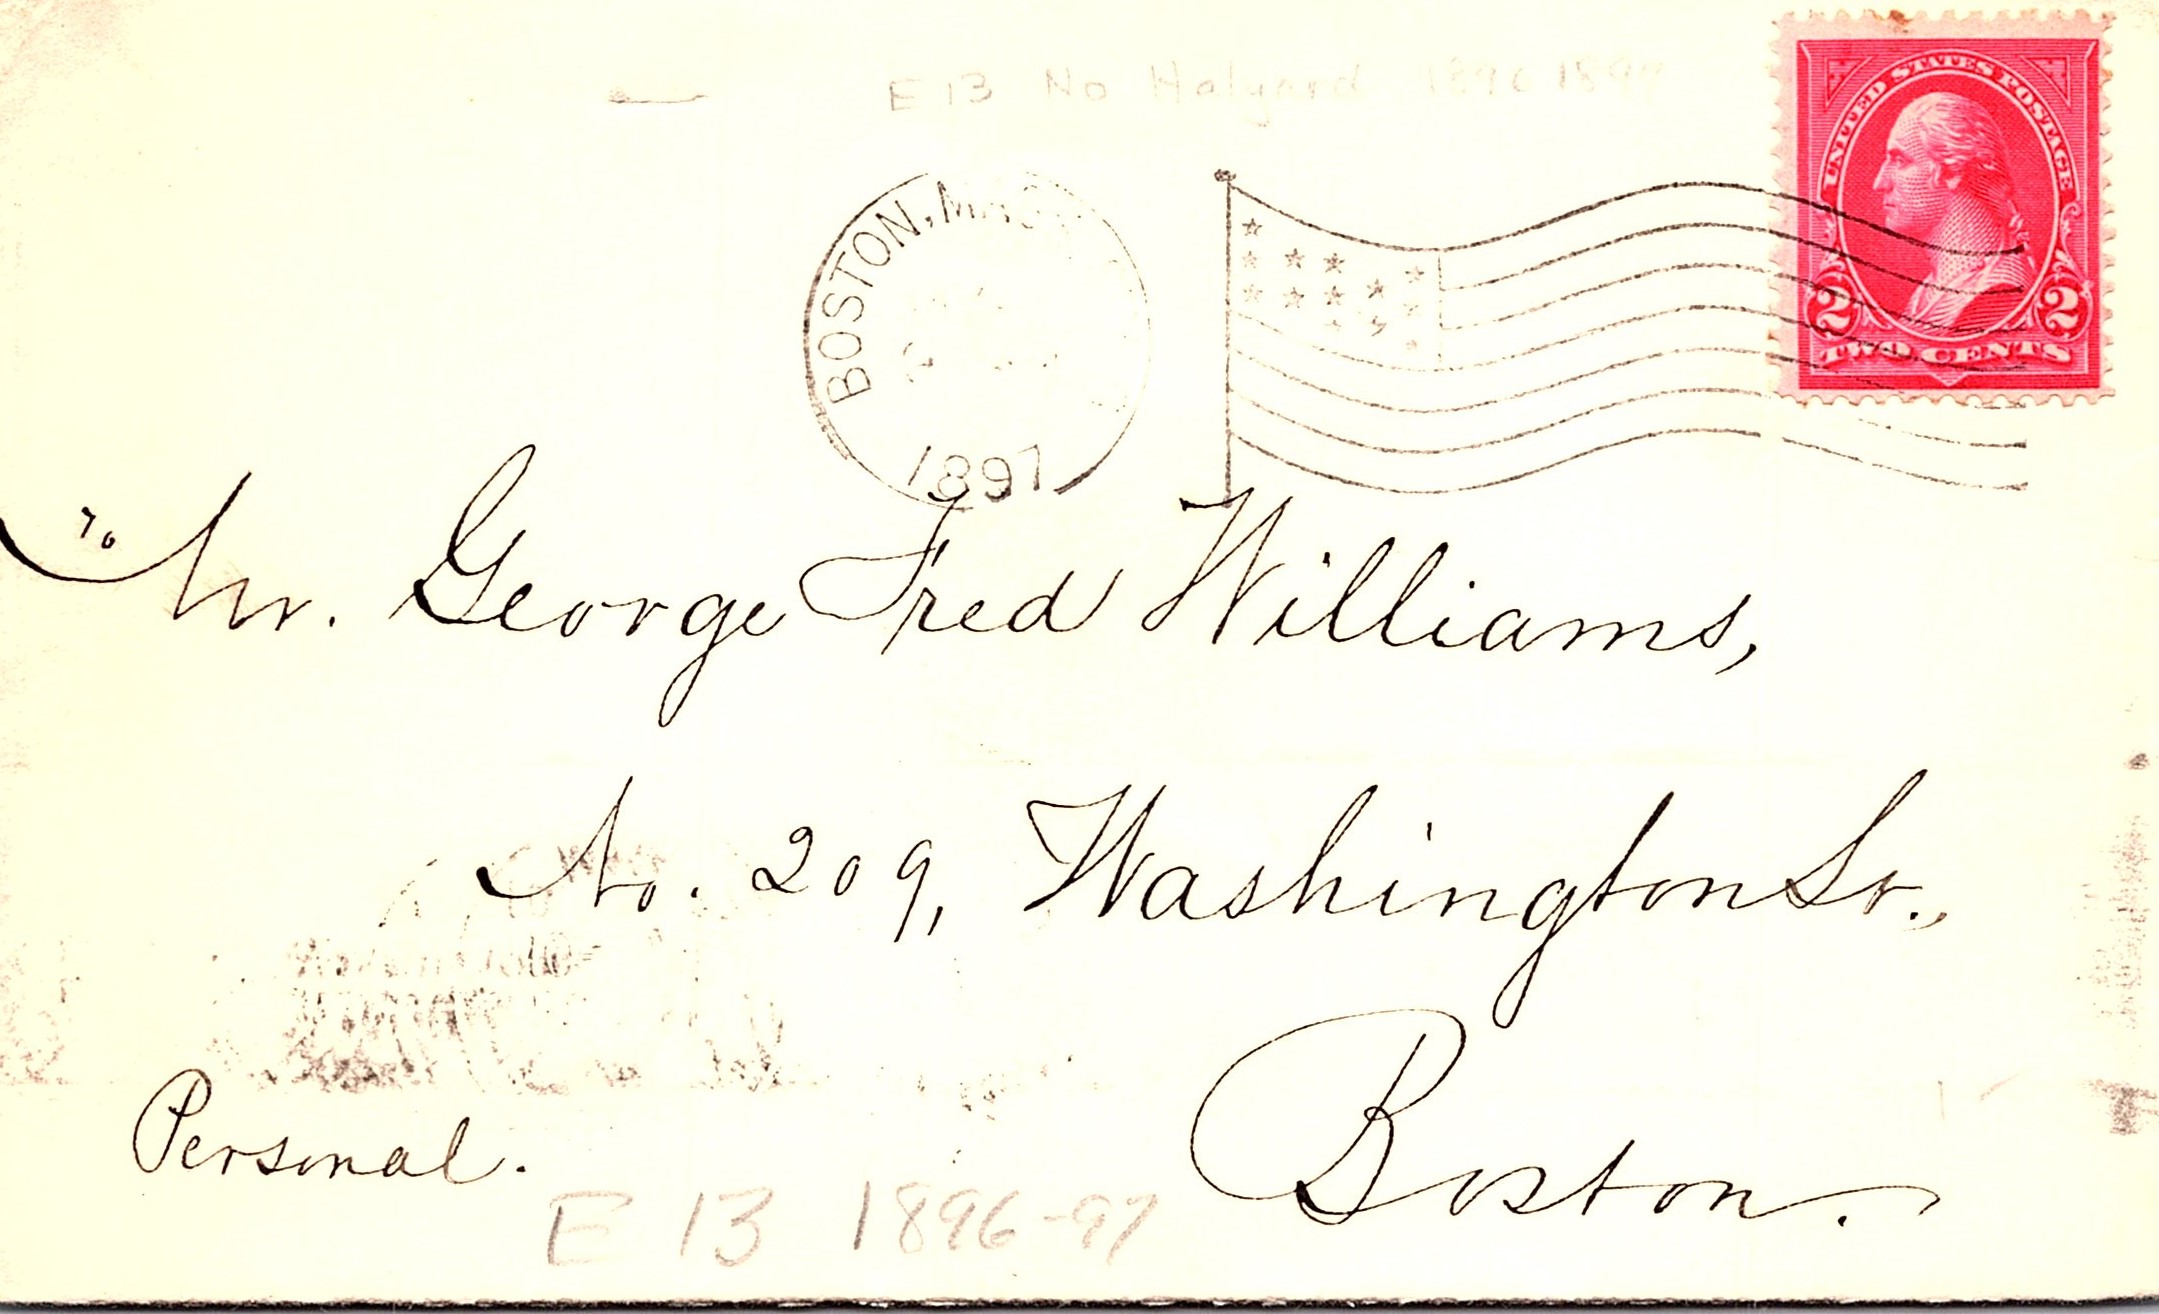 E 13 No Halyard 1896 1897
UNITED STATES POSTAGE
2 2
TWO CENTS
BOSTON, MASS
1897
To
Mr. George Fred Williams,
No. 209, Washington St.,
Boston.
Personal.
E 13 1896-97